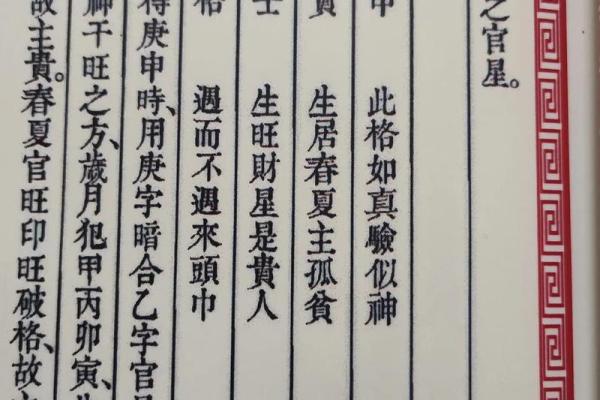 之官星。
申 此格如真驗似神
貧 生居春夏主孤貧
士 生旺財星是貴人
格 遇而不遇來頭巾
得庚申時、用庚字暗合乙字官星
神干旺之方、歲月犯甲丙卯寅、
故主貴。春夏官旺印旺破格、故